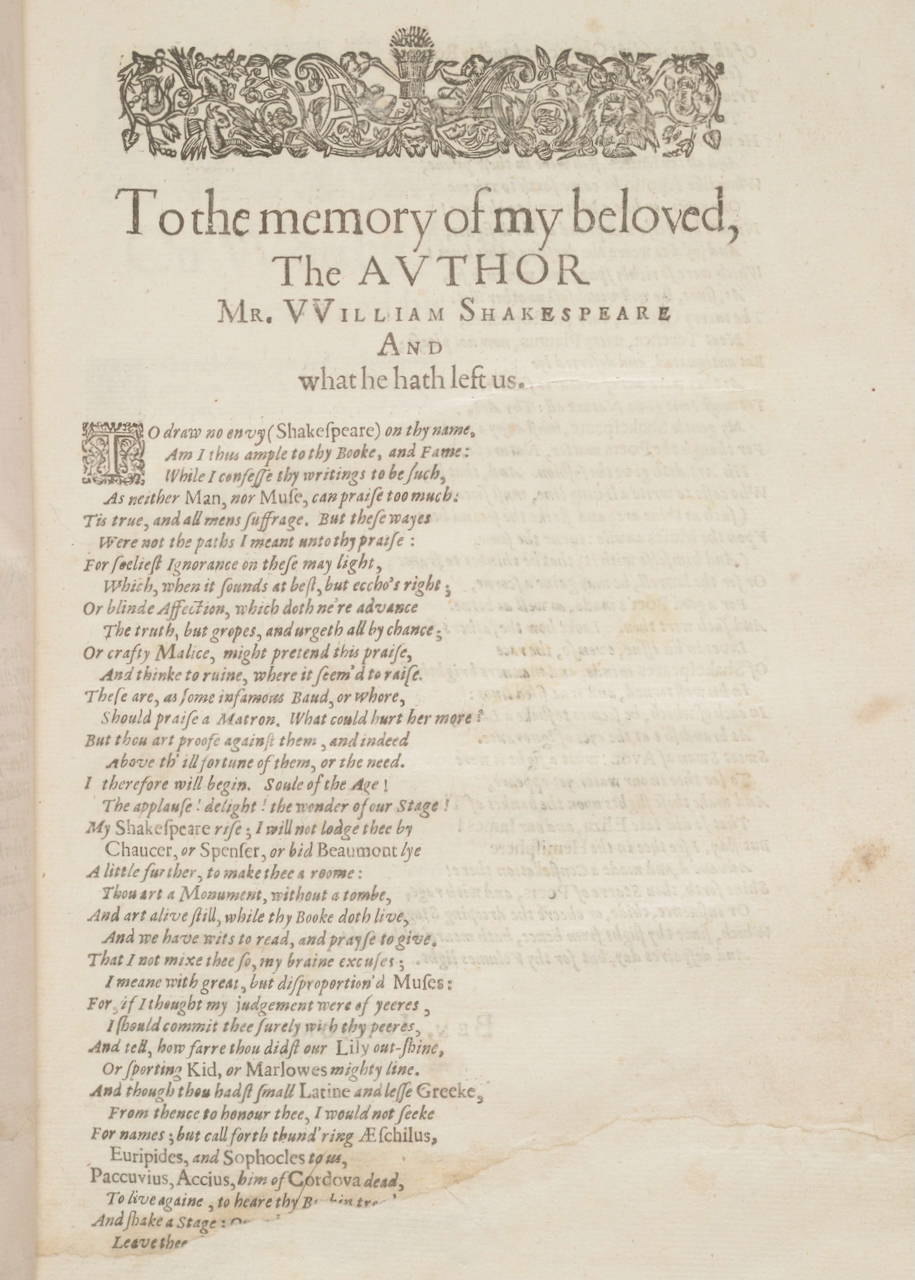 To the memory of my beloved,
The AVTHOR
MR. VVILLIAM SHAKESPEARE
AND
what he hath left us.
TO draw no envy (Shakeſpeare) on thy name,
Am I thus ample to thy Booke, and Fame:
While I confeſſe thy writings to be ſuch,
As neither Man, nor Muſe, can praiſe too much:
Tis true, and all mens ſuffrage. But theſe wayes
Were not the paths I meant unto thy praiſe :
For ſeelieſt Ignorance on theſe may light,
Which, when it ſounds at beſt, but eccho's right ;
Or blinde Affection, which doth ne're advance
The truth, but gropes, and urgeth all by chance;
Or crafty Malice, might pretend this praiſe,
And thinke to ruine, where it ſeem'd to raiſe.
Theſe are, as ſome infamous Baud, or Whore,
Should praiſe a Matron. What could hurt her more ?
But thou art proofe againſt them, and indeed
Above th' ill fortune of them, or the need.
I therefore will begin. Soule of the Age !
The applauſe ! delight ! the wonder of our Stage !
My Shakeſpeare riſe ; I will not lodge thee by
Chaucer, or Spenſer, or bid Beaumont lye
A little further, to make thee a roome :
Thou art a Monument, without a tombe,
And art alive ſtill, while thy Booke doth live,
And we have wits to read, and prayſe to give.
That I not mixe thee ſo, my braine excuſes ;
I meane with great, but diſproportion'd Muſes:
For, if I thought my judgement were of yeeres,
I ſhould commit thee ſurely with thy peeres,
And tell, how farre thou didſt our Lily out-ſhine,
Or ſporting Kid, or Marlowes mighty line.
And though thou hadſt ſmall Latine and leſſe Greeke,
From thence to honour thee, I would not ſeeke
For names ; but call forth thund'ring Æſchilus,
Euripides, and Sophocles to us,
Paccuvius, Accius, him of Cordova dead,
To live againe, to heare thy
And ſhake a Stage :
Leave thee